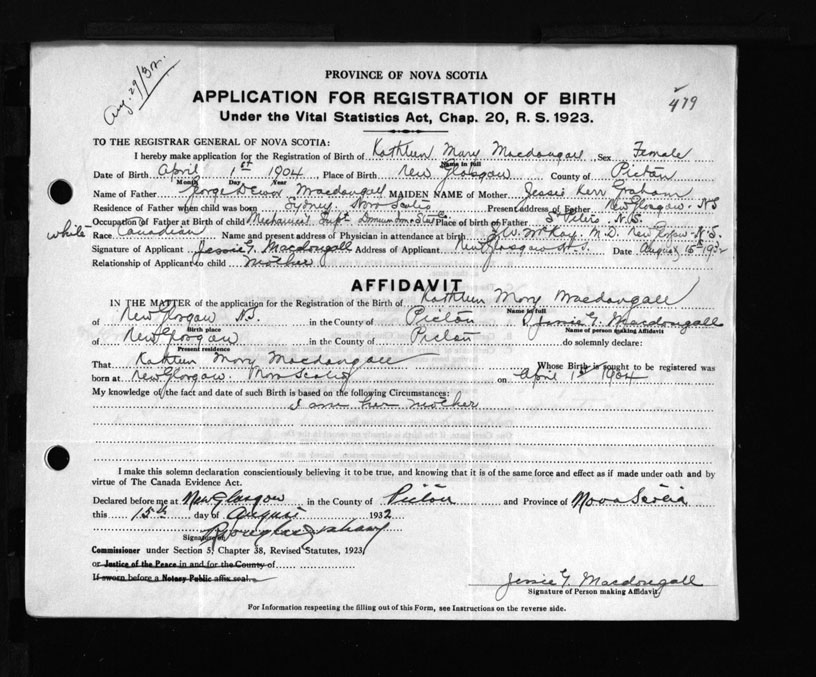 Aug. 29/32.
PROVINCE OF NOVA SCOTIA
APPLICATION FOR REGISTRATION OF BIRTH
479
Under the Vital Statistics Act, Chap. 20, R. S. 1923.
TO THE REGISTRAR GENERAL OF NOVA SCOTIA:
I hereby make application for the Registration of Birth of Kathleen Mary Macdougall Sex Female
Name in full
Date of Birth April 1st 1904 Place of Birth New Glasgow County of Pictou
Month Day Year
Name of Father George Macdougall MAIDEN NAME of Mother Jessie Kerr Graham
Residence of Father when child was born Sydney Nova Scotia Present address of Father New Glasgow. NS
Occupation of Father at Birth of child Mechanical Supt. Place of birth of Father St Peters N.S.
white Race Canadian Name and present address of Physician in attendance at birth McKay. M.D. New Glasgow N.S.
Signature of Applicant Jessie G. Macdougall Address of Applicant New Glasgow N.S. Date August 15th 1932
Relationship of Applicant to child mother
AFFIDAVIT
IN THE MATTER of the application for the Registration of the Birth of Kathleen Mary Macdougall
Name in full
of New Glasgow N.S. in the County of Pictou I, Jessie G. Macdougall
Birth place Name of person making Affidavit
of New Glasgow in the County of Pictou do solemnly declare:
Present residence
That Kathleen Mary Macdougall Whose Birth is sought to be registered was
born at New Glasgow. Nova Scotia on April 1st 1904
My knowledge of the fact and date of such Birth is based on the following Circumstances:
I am her mother
I make this solemn declaration conscientiously believing it to be true, and knowing that it is of the same force and effect as if made under oath and by
virtue of The Canada Evidence Act.
Declared before me at New Glasgow in the County of Pictou and Province of Nova Scotia
this 15th day of August 1932
Signature Douglas Graham
Commissioner under Section 5, Chapter 38, Revised Statutes, 1923
or Justice of the Peace in and for the County of
If sworn before a Notary Public affix seal.
Jessie G. Macdougall
Signature of Person making Affidavit
For Information respecting the filling out of this Form, see Instructions on the reverse side.